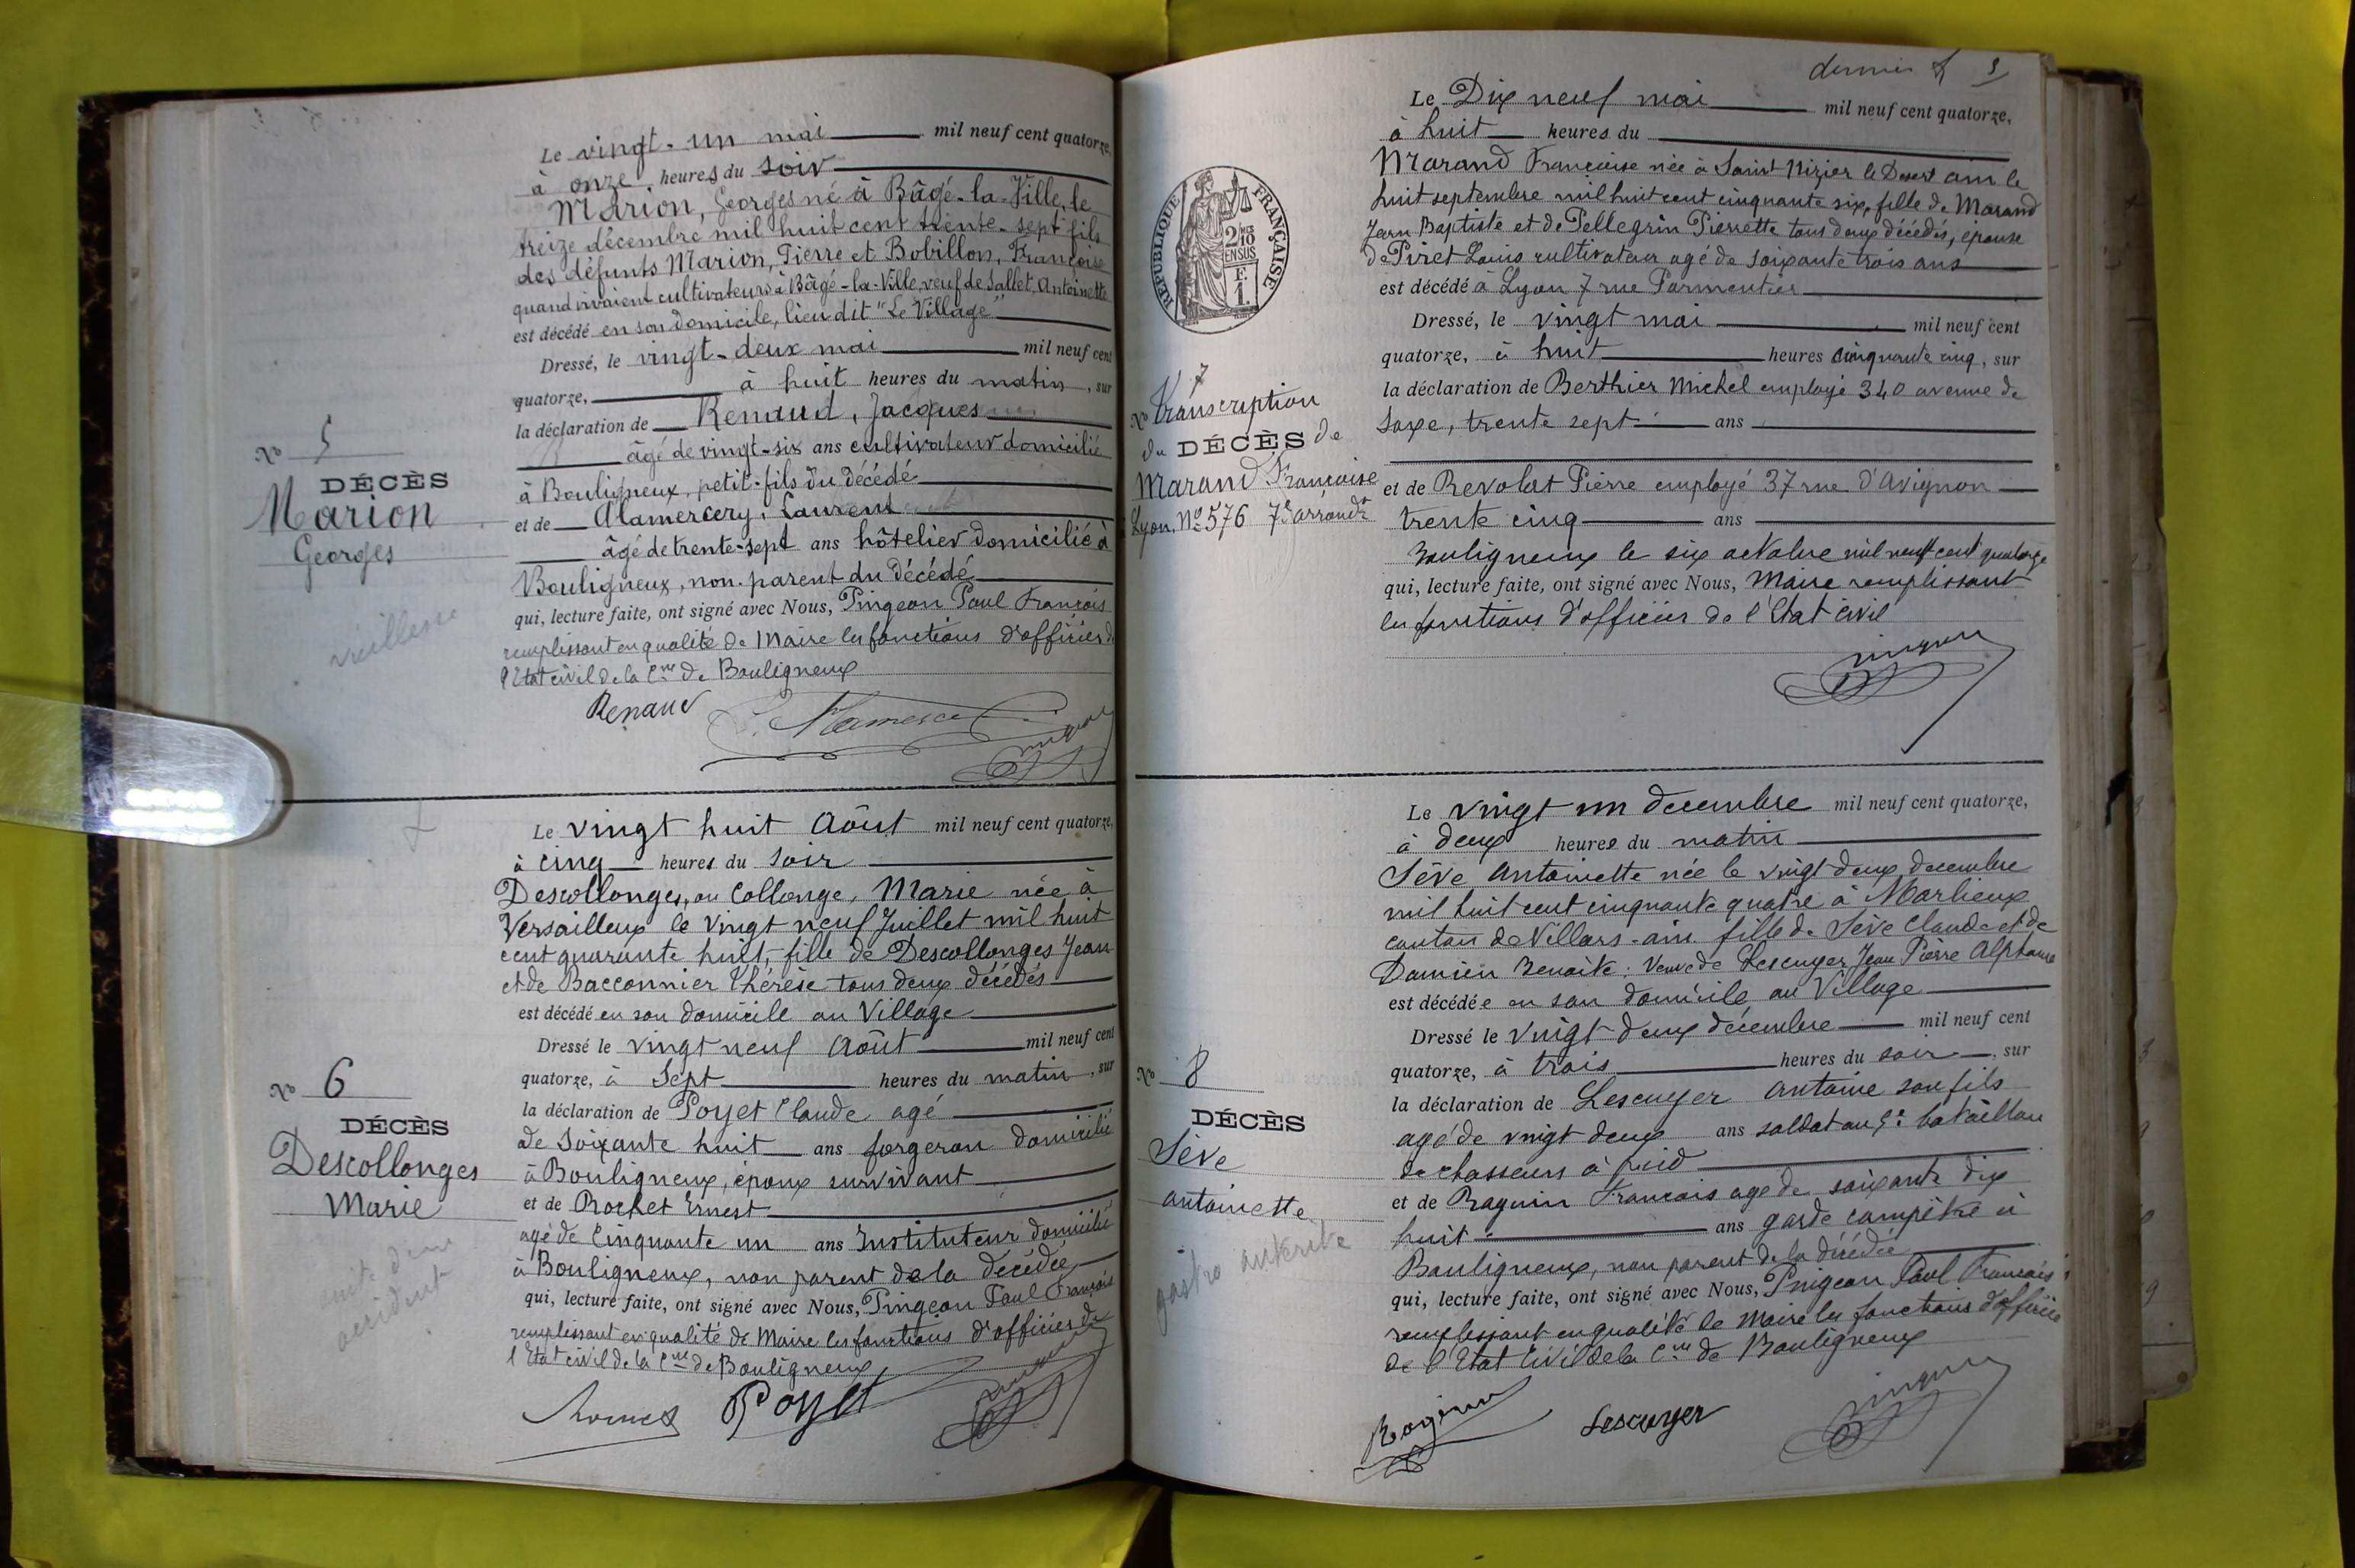 Le vingt-un mai mil neuf cent quatorze,
à onze heures du soir
Marion, Georges né à Bâgé-la-Ville, le
treize décembre mil huit cent trente-sept fils
des défunts Marion, Pierre et Bobillon, Françoise
quand vivaient cultivateurs à Bâgé-la-Ville, veuf de Sallet, Antoinette
est décédé en son domicile, lieu dit "Le Village"
Dressé, le vingt-deux mai mil neuf cent
quatorze, à huit heures du matin, sur
la déclaration de Renaud, Jacques
âgé de vingt-six ans cultivateur domicilié
à Bouligneux, petit-fils du décédé
et de Alamercery, Laurent
âgé de trente-sept ans hôtelier domicilié à
Bouligneux, non parent du décédé
qui, lecture faite, ont signé avec Nous, Pingeon Paul François
remplissant en qualité de Maire les fonctions d'officier de
l'Etat civil de la Cne de Bouligneux
Renaud
No 5
DÉCÈS
Marion
Georges
vieillesse
Le vingt huit Août mil neuf cent quatorze,
à cinq heures du soir
Descollonges, ou Collonge, Marie née à
Versailleux le vingt neuf Juillet mil huit
cent quarante huit, fille de Descollonges Jean
et de Bacconnier Thérèse tous deux décédés
est décédé en son domicile au Village
Dressé le vingt neuf Août mil neuf cent
quatorze, à Sept heures du matin, sur
la déclaration de Poyet Claude agé
de soixante huit ans forgeron domicilié
à Bouligneux, époux survivant
et de Rochet Ernest
agé de Cinquante un ans Instituteur domicilié
à Bouligneux, non parent de la décédée
qui, lecture faite, ont signé avec Nous, Pingeon Paul François
remplissant en qualité de Maire les fonctions d'officier de
l'Etat civil de la Cne de Bouligneux
Poyet
No 6
DÉCÈS
Descollonges
Marie
suite d'un
accident
dernier
Le Dix neuf mai mil neuf cent quatorze,
à huit heures du
Marand Françoise née à Saint Nizier le Desert ain le
huit septembre mil huit cent cinquante six, fille de Marand
Jean Baptiste et de Pellegrin Pierrette tous deux décédés, épouse
de Piret Louis cultivateur agé de soixante trois ans
est décédé à Lyon 7 rue Parmentier
Dressé, le vingt mai mil neuf cent
quatorze, à huit heures cinquante cinq, sur
la déclaration de Berthier Michel employé 340 avenue de
Saxe, trente sept ans
et de Revolat Pierre employé 37 rue d'Avignon
trente cinq ans
Bouligneux le six octobre mil neuf cent quatorze
qui, lecture faite, ont signé avec Nous, Maire remplissant
les fonctions d'officier de l'Etat civil
RÉPUBLIQUE FRANÇAISE
2/10
EN SUS
F.
1.
No 7
transcription
du DÉCÈS de
Marand Françoise
Lyon, No 576 7e arrondt
Le vingt un decembre mil neuf cent quatorze,
à deux heures du matin
Sève Antoinette née le vingt deux decembre
mil huit cent cinquante quatre à Marlieux
canton de Villars-ain fille de Sève Claude et de
Damien Benoite : Veuve de Lescuyer Jean Pierre Alphonse
est décédée en son domicile au Village
Dressé le vingt deux décembre mil neuf cent
quatorze, à trois heures du soir, sur
la déclaration de Lescuyer Antoine son fils
agé de vingt deux ans soldat au 5e bataillon
de chasseurs à pied
et de Raguin Francois age de soixante dix
huit ans garde campêtre à
Bouligneux, non parent de la décédée
qui, lecture faite, ont signé avec Nous, Pingeon Paul Francois
remplissant en qualité de Maire les fonctions d'officier
de l'Etat civil de la Cne de Bouligneux
Lescuyer
No 8
DÉCÈS
Sève
Antoinette
gastro enterite